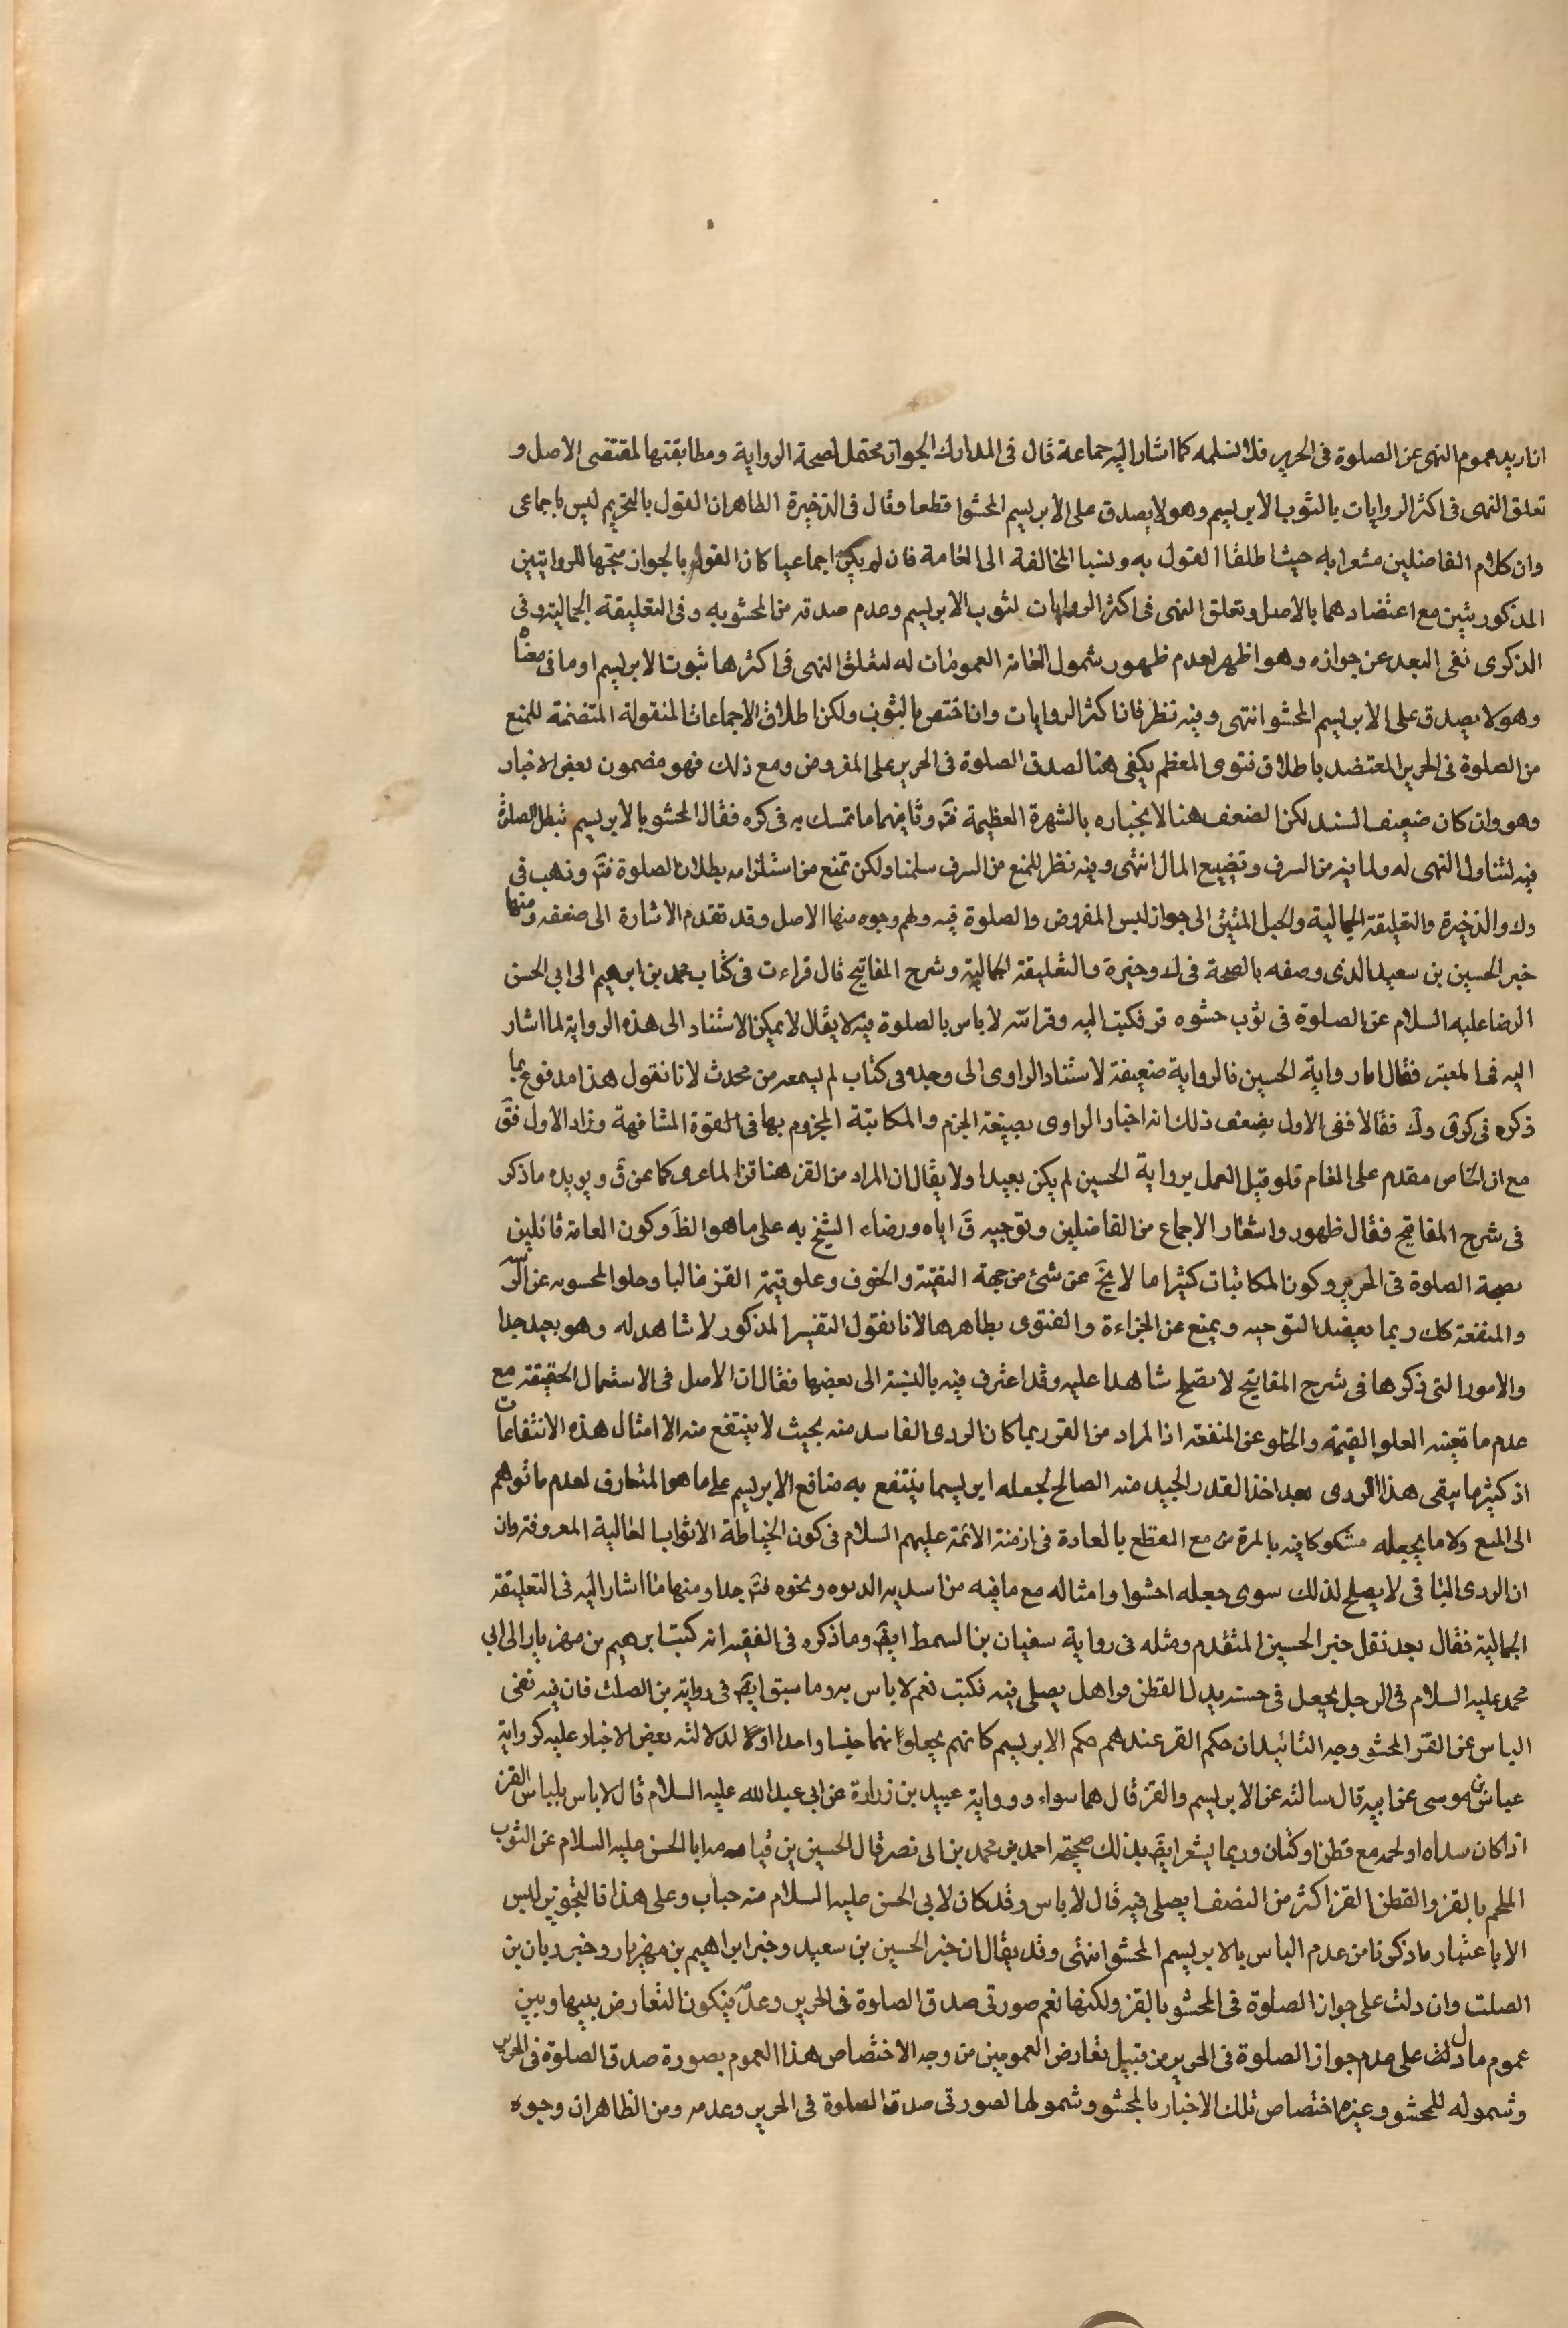 ان اريد عموم النهى عن الصلوة فى الحرير فلا نسلمه كما اشار اليه جماعة قال فى المدارك الجواز محتمل لصحة الرواية ومطابقتها لمقتضى الاصل و
تعلق النهى فى اكثر الروايات بالثوب الابريسم وهو لا يصدق على الابريسم المحشوا قطعا وقال فى الذخيرة الظاهر ان القول بالتحريم ليس باجماعى
وان كلام الفاضلين مشعرا به حيث اطلقا القول به ونسبا المخالفة الى العامة فان لم يكن اجماعيا كان القول بالجواز متجها للروايتين
المذكورتين مع اعتضادهما بالاصل وتعلق النهى فى اكثر الروايات لثوب الابريسم وعدم صدقه من المحشو به وفى التعليقة الجمالية وفى
الذكرى نفى البعد عن جوازه وهو اظهر لعدم ظهور شمول العامة العمومات له لتعلق النهى فى اكثرها بثوب الابريسم او ما فى معناه
وهو لا يصدق على الابريسم المحشو انتهى وفيه نظر فان اكثر الروايات وان اختص بالثوب ولكن اطلاق الاجماعات المنقولة المتضمنة للمنع
من الصلوة فى الحرير المعتضد باطلاق فتوى المعظم يكفى هنا لصدق الصلوة فى الحرير على المفروض ومع ذلك فهو مضمون بعض الاخبار
وهو وان كان ضعيف السند لكن الضعف هنا لا بجباره بالشهرة العظيمة فتم وثانيهما ما تمسك به فى كره فقال المحشو بالابريسم تبطل الصلوة
فيه لتناول النهى له ولما فيه من السرف وتضييع المال انتهى وفيه نظر للمنع من السرف سلمنا ولكن تمنع من استلزامه بطلان الصلوة فتم وذهب فى
ولا والذخيرة والتعليقة الجمالية والحبل المتين الى جواز لبس المفروض والصلوة فيه ولهم وجوه منها الاصل وقد تقدم الاشارة الى ضعفه ومنها
خبر الحسين بن سعيد الذى وصفه بالصحة فى لا وخيرة والتعليقة الجمالية وشرح المفاتيح قال قراءت فى كتاب محمد بن ابرهيم الى ابى الحسن
الرضا عليه السلام عن الصلوة فى ثوب حشوه قز فكتب اليه وقراته لا باس بالصلوة فيه لا يقال لا يمكن الاستناد الى هذه الرواية لما اشار
اليه فى المعتبر فقال اما رواية الحسين فالرواية ضعيفة لاستناد الراوى الى وجده فى كتاب لم يسمعه من محدث لانا نقول هذا مدفوع بما
ذكره فى كرى ولا فقالا ففى الاول يضعف ذلك انه اخبار الراوى بصيغة الجزم والمكاتبة المجزوم بها فى القوة المشافهة وزاد الاول فق
مع ان الخاص مقدم على العام فلو قيل العمل برواية الحسين لم يكن بعيدا ولا يقال ان المراد من القز هنا قز الماعز كما عن ق ويويده ما ذكر
فى شرح المفاتيح فقال ظهور واشعار الاجماع من الفاضلين وتوجيه ق اياه ورضاء الشيخ به على ما هو الظ وكون العامة قائلين
بصحة الصلوة فى الحرير وكون المكاتبات كثيرا ما لا يخ عن شئ من جهة التقية والخوف وعلو قيمة القز غالبا وخلو المحسوبه عن
والمنفعة كك ربما يعضد التوجيه ويمنع عن الجراءة والفتوى بظاهرها لانا نقول التفسير المذكور لا شاهد له وهو بعيد جدا
والامور التى ذكرها فى شرح المفاتيح لا تصلح شاهدا عليه وقد اعترف فيه بالنسبة الى بعضها فقال ان الاصل فى الاستعمال الحقيقة مع
عدم ما تعينه العلو القيمة والخلو عن المنفعة اذ المراد من القز ربما كان الردى الفاسد منه بحيث لا ينتفع منه الا امثال هذه الانتفاعات
اذ كثيرا ما يبقى هذا الردى بعد اخذ القدر الجيد منه الصالح لجعله ابريسما ينتفع به منافع الابريسم على ما هو المتعارف لعدم ما توهم
الى المنع ولا ما يجعله مشكوكا فيه بالمرة من مع القطع بالعادة فى ازمنة الائمة عليهم السلام فى كون الخياطة الاثواب الغالية المعروفة وان
ان الردى الباقى لا يصلح لذلك سوى جعله احشوا وامثاله مع ما فيه من ونحوه فتم جدا ومنها ما اشار اليه فى التعليقة
الجمالية فقال بعد نقل خبر الحسين المتقدم ومثله فى رواية سفيان بن السمط ايضا وما ذكره فى الفقيه انه كتب ابرهيم بن مهزيار الى ابى
محمد عليه السلام فى الرجل يجعل فى جبته بدل القطن قزا هل يصلى فيه فكتب نعم لا باس به وما سبق ايضا فى رواية بن الصلت فان فيه نفى
الباس عن القز المحشو وجه التائيد ان حكم القز عندهم حكم الابريسم كانهم يجعلوا انهما جنسا واحدا اولا لدلالته بعض الاخبار عليه كرواية
عباش بن موسى عن ابيه قال سالته عن الابريسم والقز قال هما سواء ورواية عبيد بن زرارة عن ابى عبد الله عليه السلام قال لا باس بلباس القز
اذا كان سداه او لحمه مع قطن او كتان وربما يشعر ايضا بذلك صحيحة احمد بن محمد بن ابى نصر قال الحسين بن قياما ابا الحسن عليه السلام عن الثوب
الملحم بالقز والقطن القز اكثر من النصف ايصلى فيه قال لا باس وقد كان لابى الحسن عليه السلام منه جباب وعلى هذا فالتجويز ليس
الا باعتبار ما ذكرنا من عدم الباس بالابريسم المحشو انتهى وقد يقال ان خبر الحسين بن سعيد وخبر ابراهيم بن مهزيار وخبر ديان بن
الصلت وان دلت على جواز الصلوة فى المحشو بالقز ولكنها نعم صورتى صدق الصلوة فى الحرير وعدمه فيكون التعارض بينها وبين
عموم ما دل على عدم جواز الصلوة فى الحرير من قبيل تعارض العمومين من وجه لاختصاص هذا العموم بصورة صدق الصلوة فى الحرير
وشموله للمحشو وغيره واختصاص تلك الاخبار بالمحشو وشمولها لصورتى صدق الصلوة فى الحرير وعدمه ومن الظاهر ان وجوه